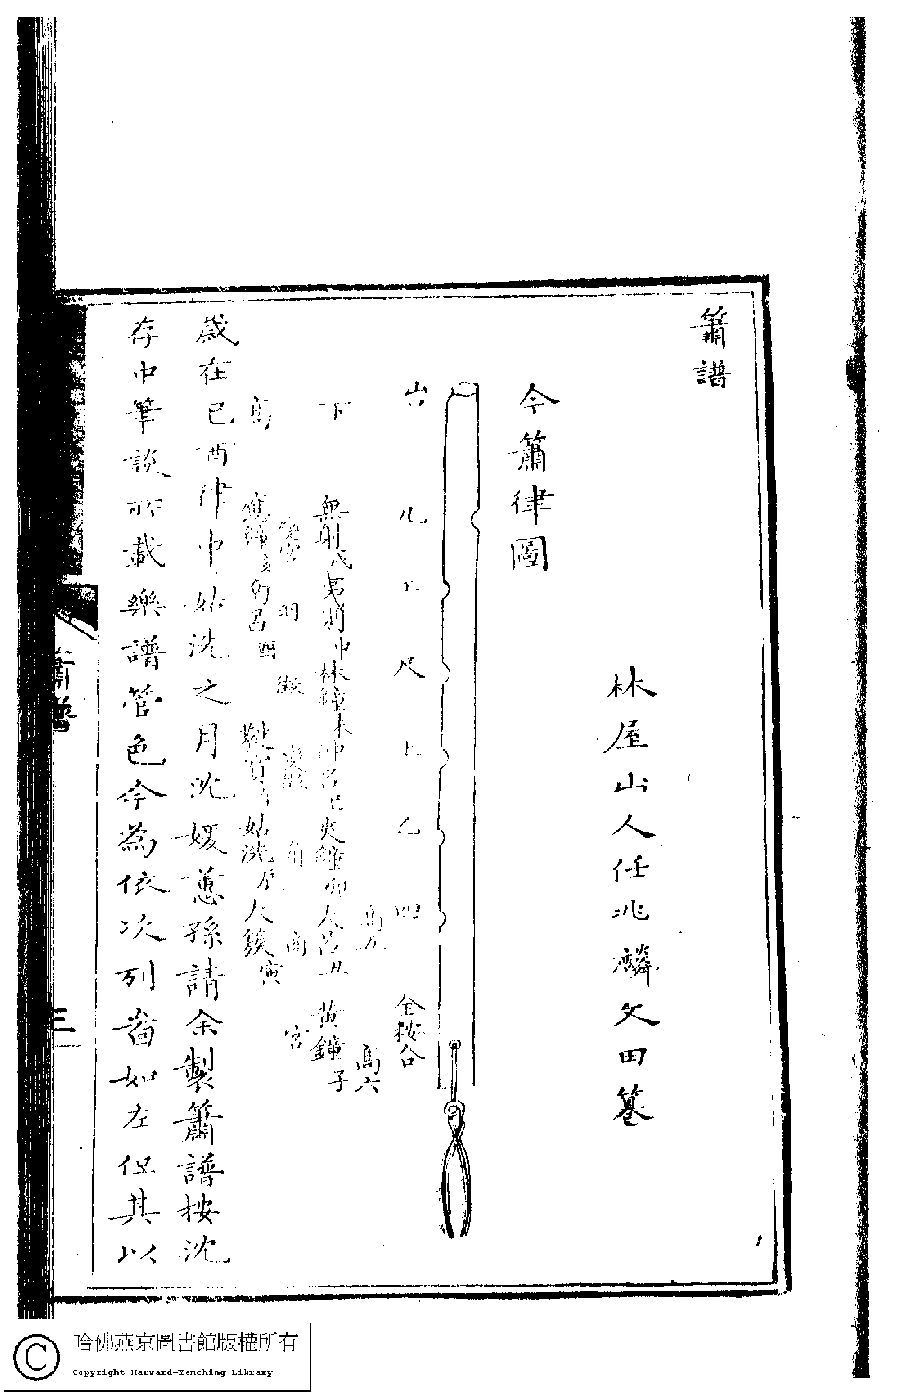 簫譜
林屋山人任兆麟文田纂
今簫律圖
出 凡 工 尺 上 乙 四 全按合
高五 高六
下 無射戌夷則申林鐘未仲呂巳夾鐘卯大呂丑 黃鐘子
變宮 羽 徵 變徵 角 商 宮
高 應鐘亥南呂酉 蕤賓午姑洗辰大簇寅
歲在己酉律中姑洗之月沈媛蕙孫請余製簫譜按沈
存中筆談所載樂譜管色今為依次列着如左但其以
簫譜
三
哈佛燕京圖書館版權所有
Copyright Harvard-Yenching Library